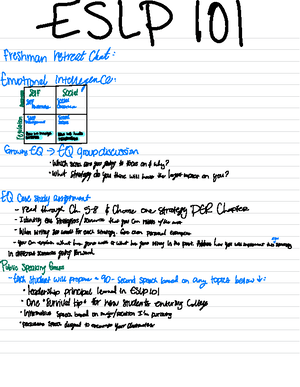 ESLP 101
Freshman retreat Chat:
Emotional Intelligence:
Self Social
Recognition
Regulation
Self Awareness Social Awareness
Self Management Social Skills
Growing EQ → EQ group discussion
• Which area are you going to focus on & why?
• What strategy do you think will have the largest impact on you?
EQ Case Study assignment
- read through Ch 5-8 & Choose one strategy PER Chapter
- Identify one strategies/ that you can
- When writing for each strategy, Give own personal examples
- You can explain what has gone well & what has gone wrong in the past. Address how you will implement this strategy
in different going forward.
Public Speaking
- Each student will prepare a 90-second speech based on any topics below ↓:
• leadership principal learned in ESLP 101
• One "survival tip" for new students entering College
• Informative speech based on major/vocation I'm pursuing
• persuasive speech designed to your classmates